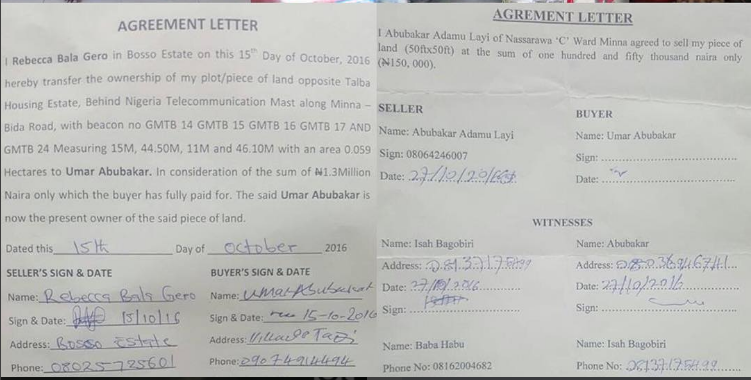 AGREEMENT LETTER
I Rebecca Bala Gero in Bosso Estate on this 15th Day of October, 2016
hereby transfer the ownership of my plot/piece of land opposite Talba
Housing Estate, Behind Nigeria Telecommunication Mast along Minna –
Bida Road, with beacon no GMTB 14 GMTB 15 GMTB 16 GMTB 17 AND
GMTB 24 Measuring 15M, 44.50M, 11M and 46.10M with an area 0.059
Hectares to Umar Abubakar. In consideration of the sum of ₦1.3Million
Naira only which the buyer has fully paid for. The said Umar Abubakar is
now the present owner of the said piece of land.
Dated this 15th Day of October 2016
SELLER'S SIGN & DATE
Name: Rebecca Bala Gero
Sign & Date: 15/10/16
Address: Bosso Estate
Phone: 08025725601
BUYER'S SIGN & DATE
Name: Umar Abubakar
Sign & Date: 15-10-2016
Address: Village Tazi
Phone: 09074914494
AGREMENT LETTER
I Abubakar Adamu Layi of Nassarawa 'C' Ward Minna agreed to sell my piece of
land (50ftx50ft) at the sum of one hundred and fifty thousand naira only
(₦150, 000).
SELLER
Name: Abubakar Adamu Layi
Sign: 08064246007
Date: 27/10/2016
BUYER
Name: Umar Abubakar
Sign:
Date:
WITNESSES
Name: Isah Bagobiri
Address: 08137175499
Date: 27/10/2016
Sign:
Name: Abubakar
Address: 08036946741
Date: 27/10/2016
Sign:
Name: Baba Habu
Phone No: 08162004682
Name: Isah Bagobiri
Phone No: 08137175499